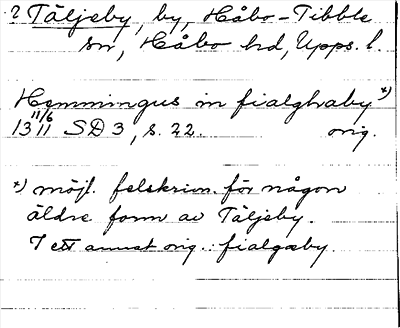 ? Täljeby, by, Håbo-Tibble
sn, Håbo hd, Upps. l.
Hemmingus in fialghaby *)
13 11/6 11 SD 3, s. 22. orig.
*) möjl. felskrivn. för någon
äldre form av Täljeby.
I ett annat orig.: fialgæby.